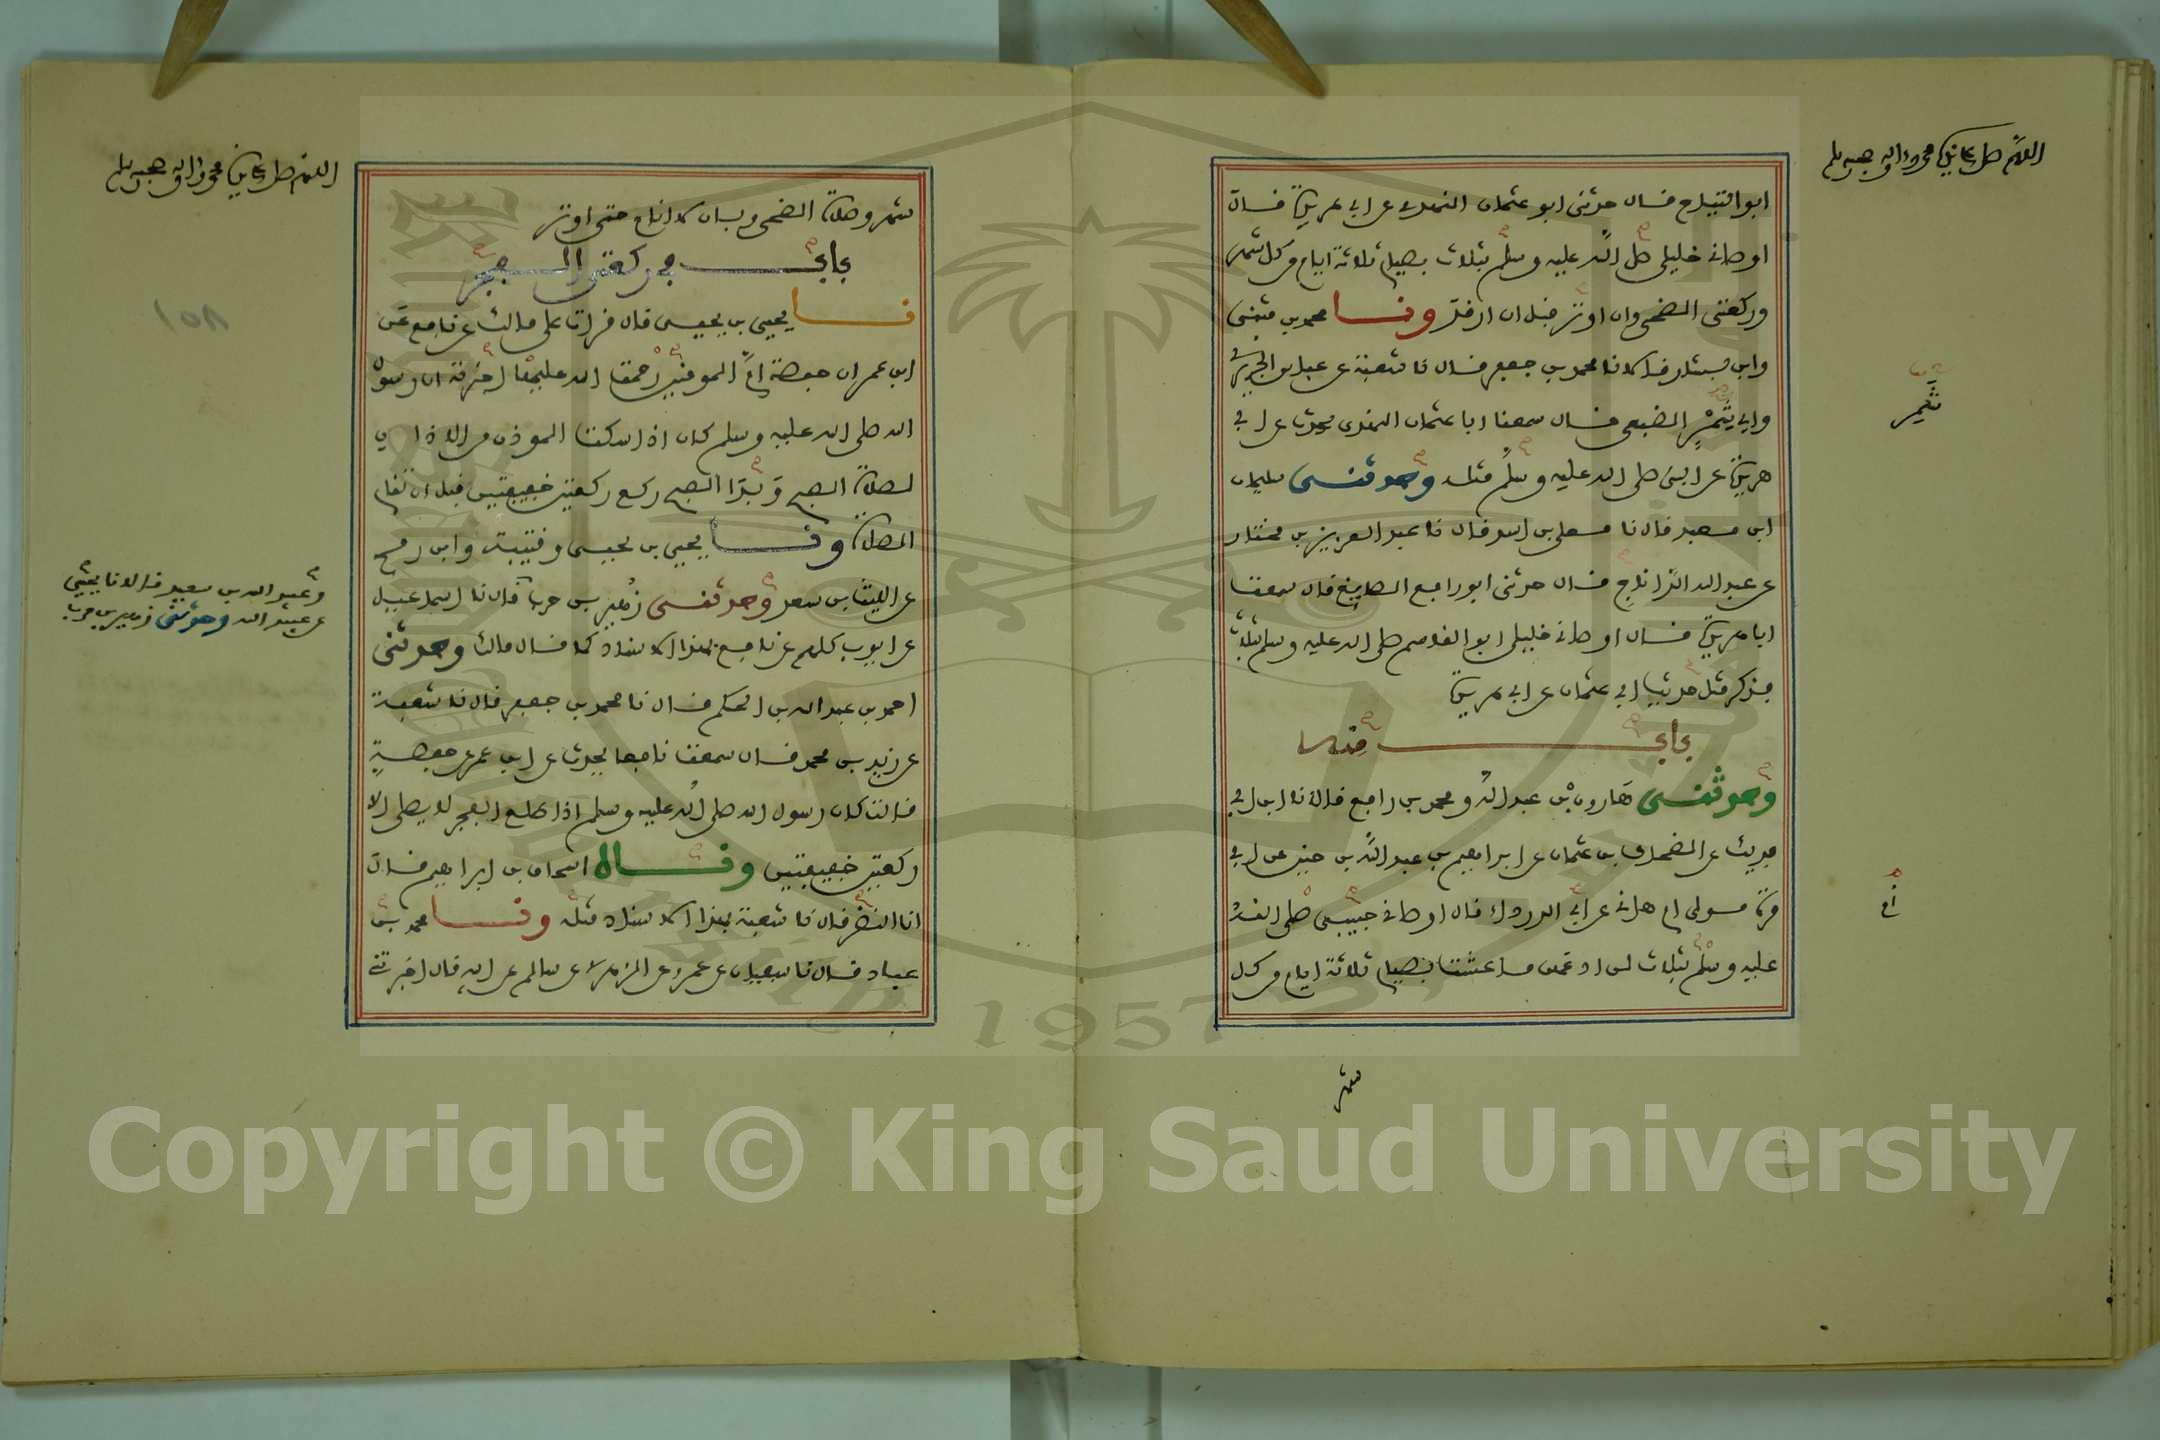 اللهم صل على سيدنا محمد واله وصحبه وسلم
ابو التياح قال حدثنى ابو عثمان النهدى عن ابى هريرة قال
اوصانى خليلى صلى الله عليه وسلم بثلاث بصيام ثلاثة ايام من كل شهر
وركعتى الضحى وان اوتر قبل ان ارقد ونا محمد بن مثنى
وابن بشار قالا نا محمد بن جعفر قال نا شعبة عن عباس الجريرى
وابى شمر الضبعى قال سمعنا ابا عثمان النهدى يحدث عن ابى
هريرة عن النبى صلى الله عليه وسلم مثله وحدثنى سليمان
ابن معبد قال نا معلى بن اسد قال نا عبد العزيز بن مختار
عن عبد الله الداناج قال حدثنى ابو رافع الصايغ قال سمعت
ابا هريرة قال اوصانى خليلى ابو القاسم صلى الله عليه وسلم بثلاث
فذكر مثل حديث ابى عثمان عن ابى هريرة
باب منه
وحدثنى هارون بن عبد الله ومحمد بن رافع قالا نا ابن ابى
فديك عن الضحاك بن عثمان عن ابراهيم بن عبد الله بن حنين عن ابى
مرة مولى ام هانى عن ابى الدرداء قال اوصانى حبيبى صلى الله
عليه وسلم بثلاث لن ادعهن ما عشت بصيام ثلاثة ايام من كل
شهر
اللهم صل على سيدنا محمد واله وصحبه وسلم
١٥٨
شهر وصلاة الضحى وبان لا انام حتى اوتر
باب فى ركعتى الفجر
نا يحيى بن يحيى قال قرات على مالك عن نافع عن
ابن عمر ان حفصة ام المومنين رحمت الله عليها اخبرته ان رسول
الله صلى الله عليه وسلم كان اذا سكت الموذن من الاذان
لصلاة الصبح وبدا الصبح ركع ركعتين خفيفتين قبل ان تقام
الصلاة ونا يحيى بن يحيى وقتيبة وابن رمح
عن الليث بن سعد وحدثنى زهير بن حرب قال نا اسماعيل
عن ايوب كلهم عن نافع بهذا الاسناد كما قال مالك وحدثنى
احمد بن عبد الله بن الحكم قال نا محمد بن جعفر قال نا شعبة
عن زيد بن محمد قال سمعت نافعا يحدث عن ابن عمر عن حفصة
قالت كان رسول الله صلى الله عليه وسلم اذا طلع الفجر لا يصلى الا
ركعتين خفيفتين وناه اسحاق بن ابراهيم قال
انا النضر قال نا شعبة بهذا الاسناد مثله ونا محمد بن
عباد قال نا سفيان عن عمرو عن الزهرى عن سالم عن ابيه قال اخبرتنى
وعبيد الله بن سعيد قالا نا يحيى
عن عبيد الله وحدثنى زهير بن حرب
Copyright © King Saud University
1957